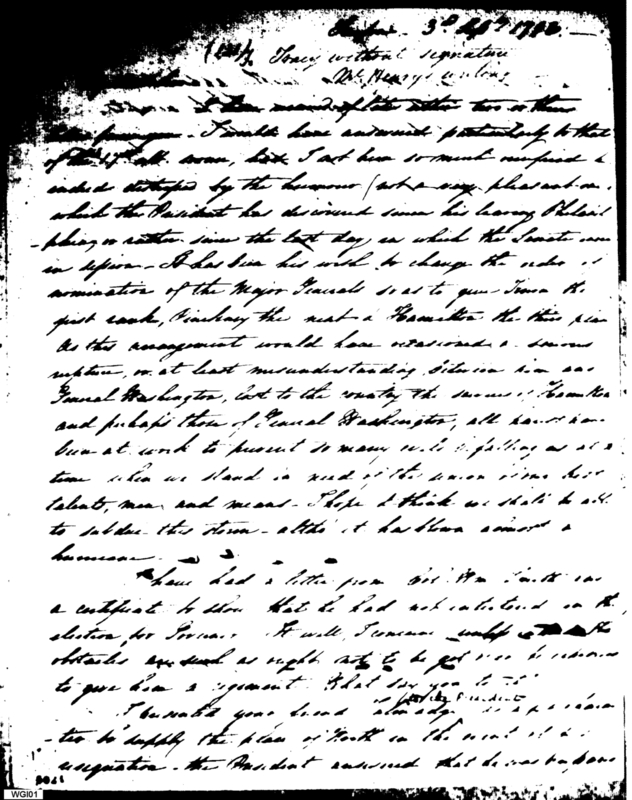 Trenton - 3d Sept 1798
without signature
Mr. Henry's writing
two or three
I would have answered particularly to that
of the 17th ult. soon, but I have been so much
by the humour (not a very pleasant one)
which the President has discovered since his leaving Philadel
-phia, or rather since the last day, on which the Senate were
in session - It has been his wish to change the order of
nomination of the Major Generals so as to give Knox the
first rank, Pinckney the next & Hamilton the third place
As this arrangement would have occasioned a serious
rupture, or at least misunderstanding between him and
General Washington, lost to the country the services of Hamilton
and perhaps those of General Washington, all hands have
been at work to prevent so many evils falling us at a
time when we stand in need of the union of our best
talents, men and means - I hope & think we shall be able
to subdue this storm - altho' it has blown almost a
hurricane.
I have had a letter from Col. Wm. Smith and
a certificate to show that he had not interfered in the
election for Governor. It will, I conceive, unless the
obstacles are such as ought not to be got over be
to give him a regiment. What say you to it?
I presented your friend to the President
to supply the place of North in the event of his
resignation - the President answered that he was
WGI01